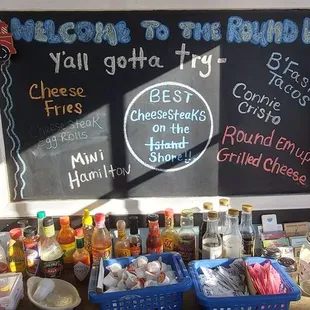 WELCOME TO THE ROUND
Y'all gotta try-
Cheese Fries
Cheesesteak
egg Rolls
Mini
Hamilton
BEST
CheeseSTEAKS
on the
Island
Shore!!
B'Fast
Tacos
Connie
Cristo
Round Em up
Grilled Cheese